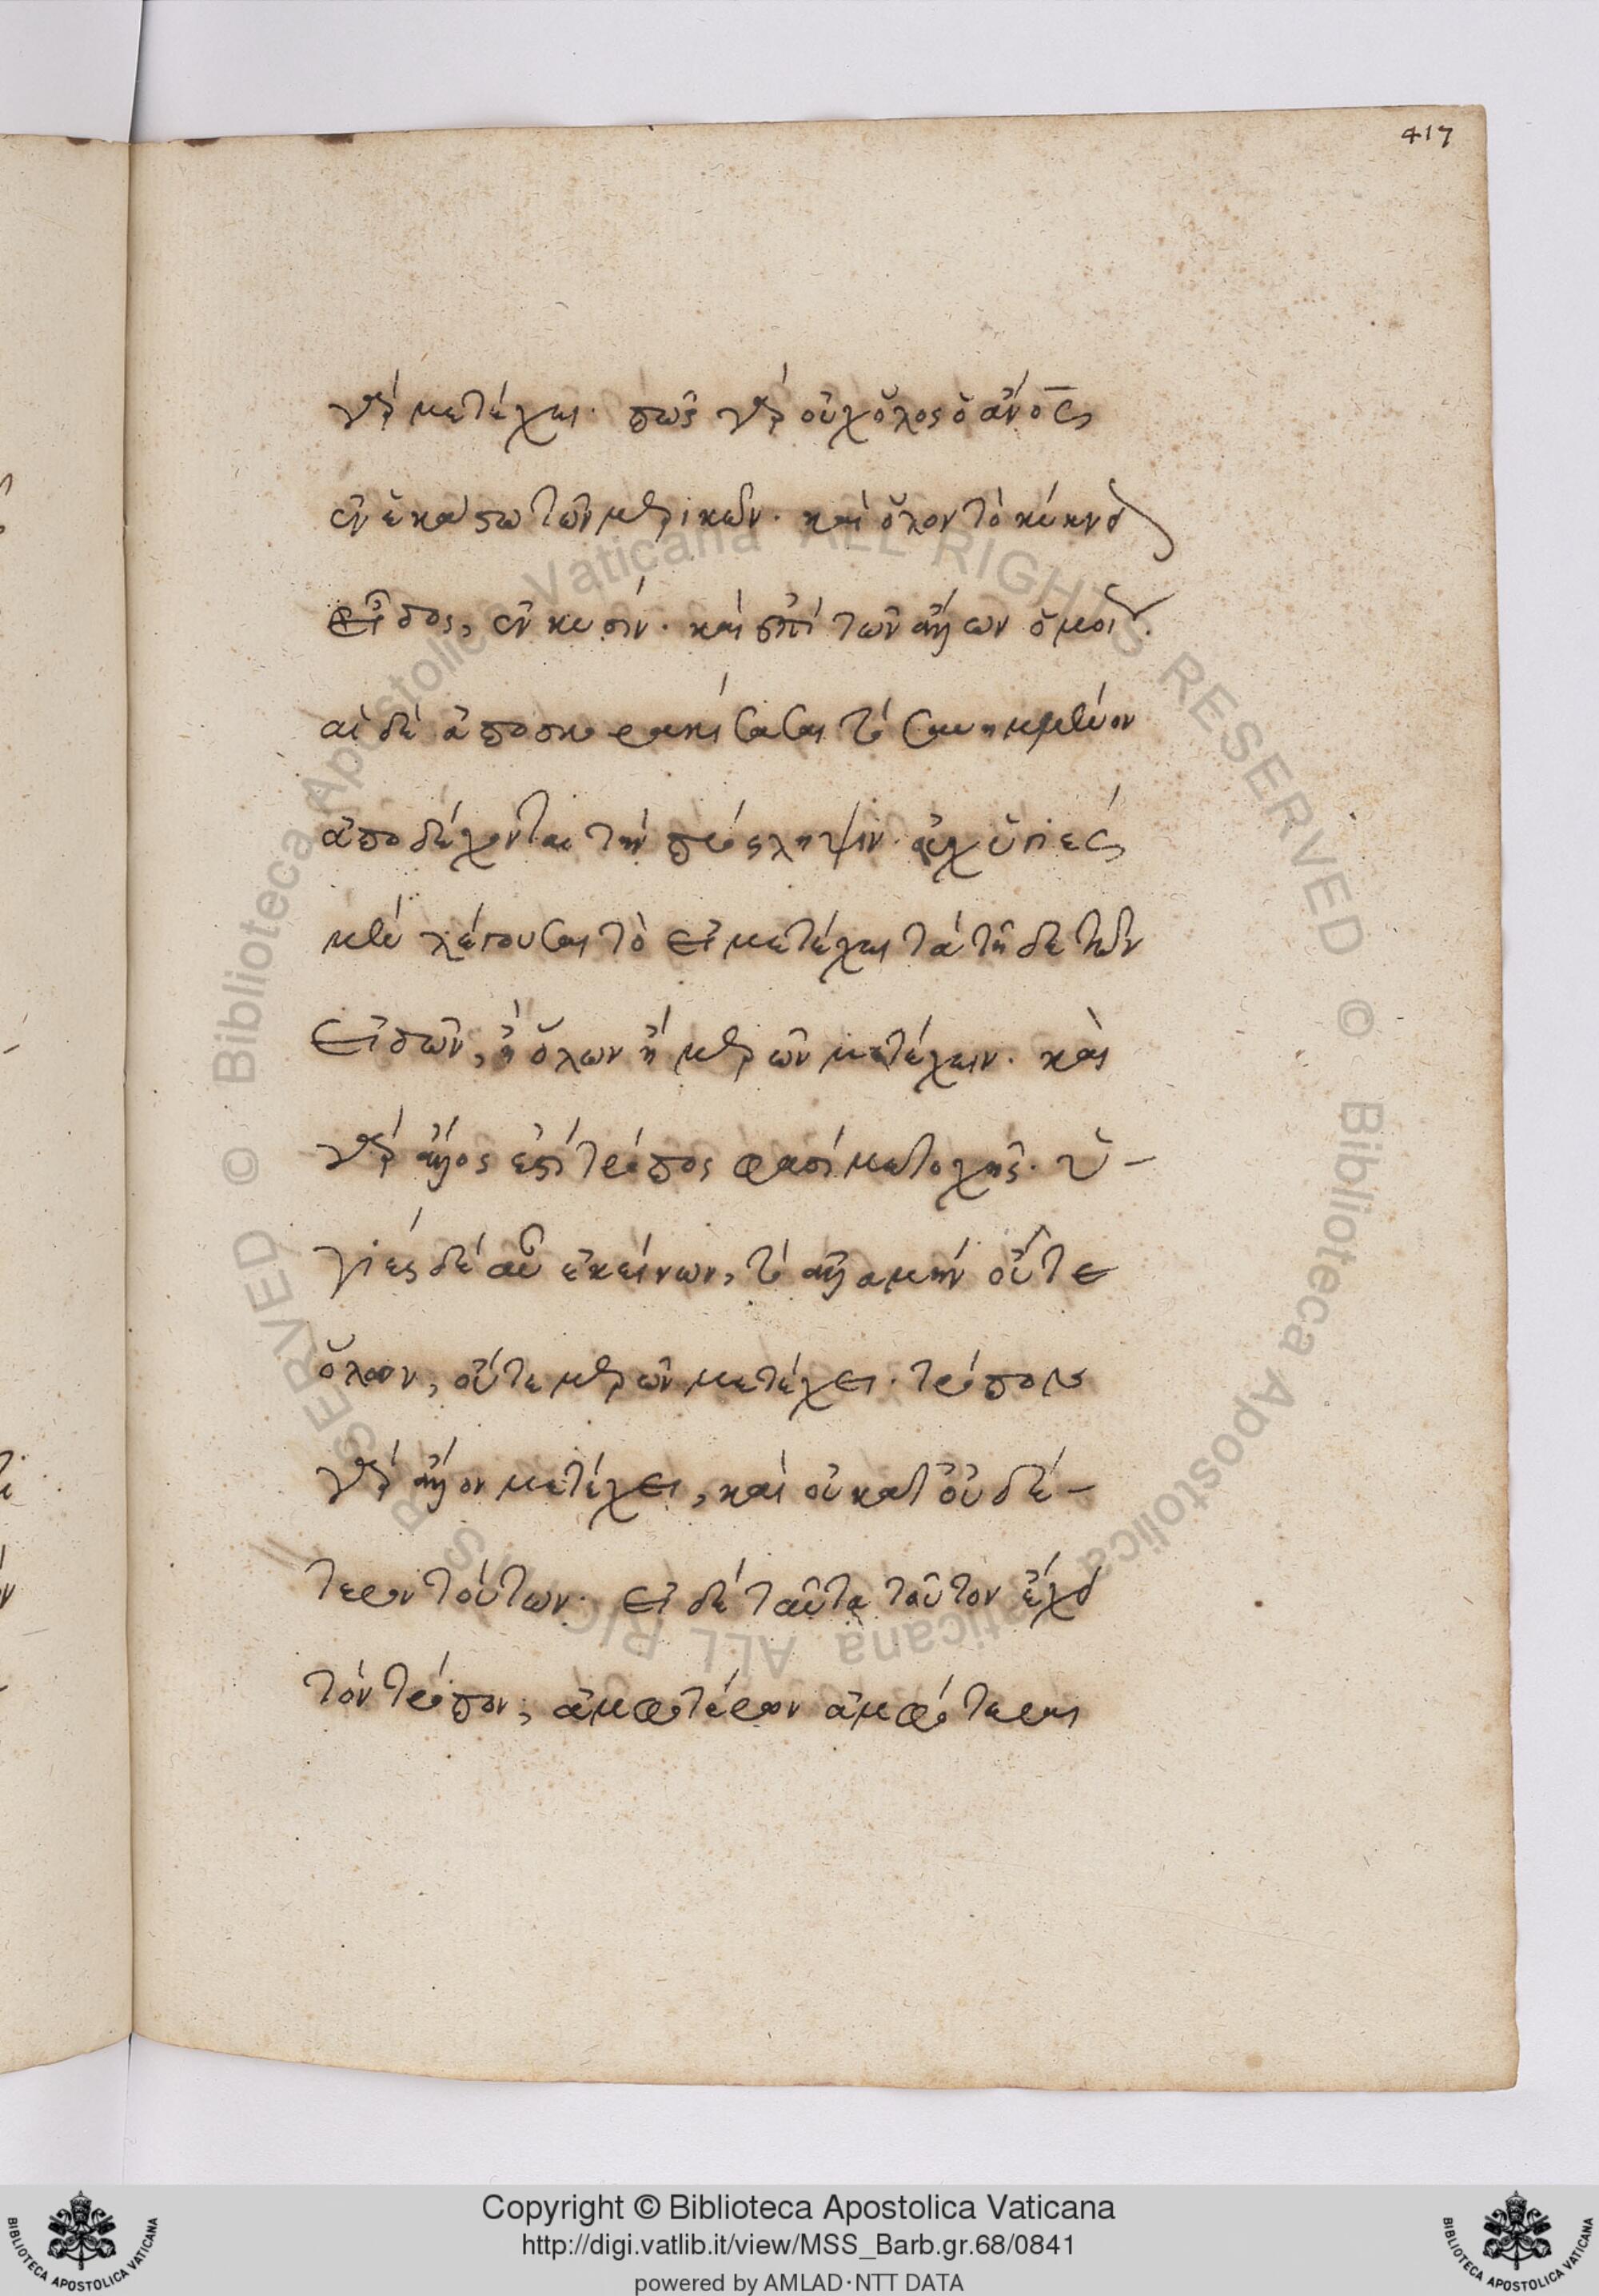 417
γὰρ μετέχει. πῶς γὰρ οὐχ ὅλος ὁ ἄνος
ἐν ἑκάστω τῶν μερικῶν. καὶ ὅλον τὸ κύκνου
εἶδος, ἐν
καὶ ἐπὶ τῶν ἄλλων ὁμοίως.
αἱ δὲ
τὸ
ἀποδέχονται τὴν πρόσληψιν. οὐχ ὑγιὲς
μὲν λέγουσαι τὸ εἰ μετέχει τὰ τῆδε τῶν
εἰδῶν, ἢ ὅλων ἢ μερῶν μετέχειν. καὶ
γὰρ ἄλλος ἐστὶ τρόπος φασὶ μετοχῆς. ὑ-
γιὲς δὲ αὖ ἐκείνων, τὸ ἀλλὰ μὴν οὔτε
ὅλων, οὔτε μερῶν μετέχει. τρόπον
γὰρ ἄλλον μετέχει, καὶ οὐ κατ οὐδέ-
τερον τούτων. εἰ δὲ ταῦτα τοῦτον ἔχει
τὸν τρόπον, ἀμφοτέρων ἀμφότεραι
Copyright © Biblioteca Apostolica Vaticana
http://digi.vatlib.it/view/MSS_Barb.gr.68/0841
powered by AMLAD·NTT DATA
BIBLIOTECA APOSTOLICA VATICANA
BIBLIOTECA APOSTOLICA VATICANA
© Biblioteca Apostolica Vaticana ALL RIGHTS RESERVED © Biblioteca Apostolica Vaticana ALL RIGHTS RESERVED